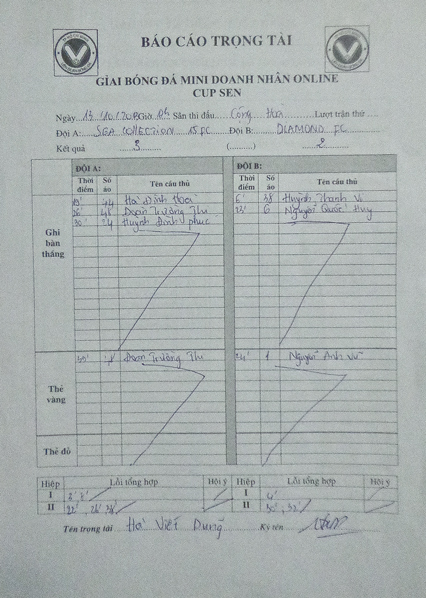 BÁO CÁO TRỌNG TÀI
GIẢI BÓNG ĐÁ MINI DOANH NHÂN ONLINE
CUP SEN
Ngày... Giờ... Sân thi đấu... Cộng Hoà ...Lượt trận thứ....
Đội A:... SEA COLLECTION ... FC ...Đội B:... DIAMOND FC
Kết quả 3 (..........) 2
ĐỘI A: ĐỘI B:
Thời điểm Số áo Tên cầu thủ Thời điểm Số áo Tên cầu thủ
Ghi bàn thắng
44 Hà Đình Hoài 6' 38 Huỳnh Thanh Vi
48 Đoàn Trường Thi 6 Nguyễn Quốc Huy
30' 24 Huỳnh Đình Phúc
Thẻ vàng
Đoàn Trường Thi 1 Nguyễn Anh Vũ
Thẻ đỏ
Hiệp Lỗi tổng hợp Hội ý Hiệp Lỗi tổng hợp Hội ý
I I 4'
II II
Tên trọng tài Hà Viết Dũng Ký tên